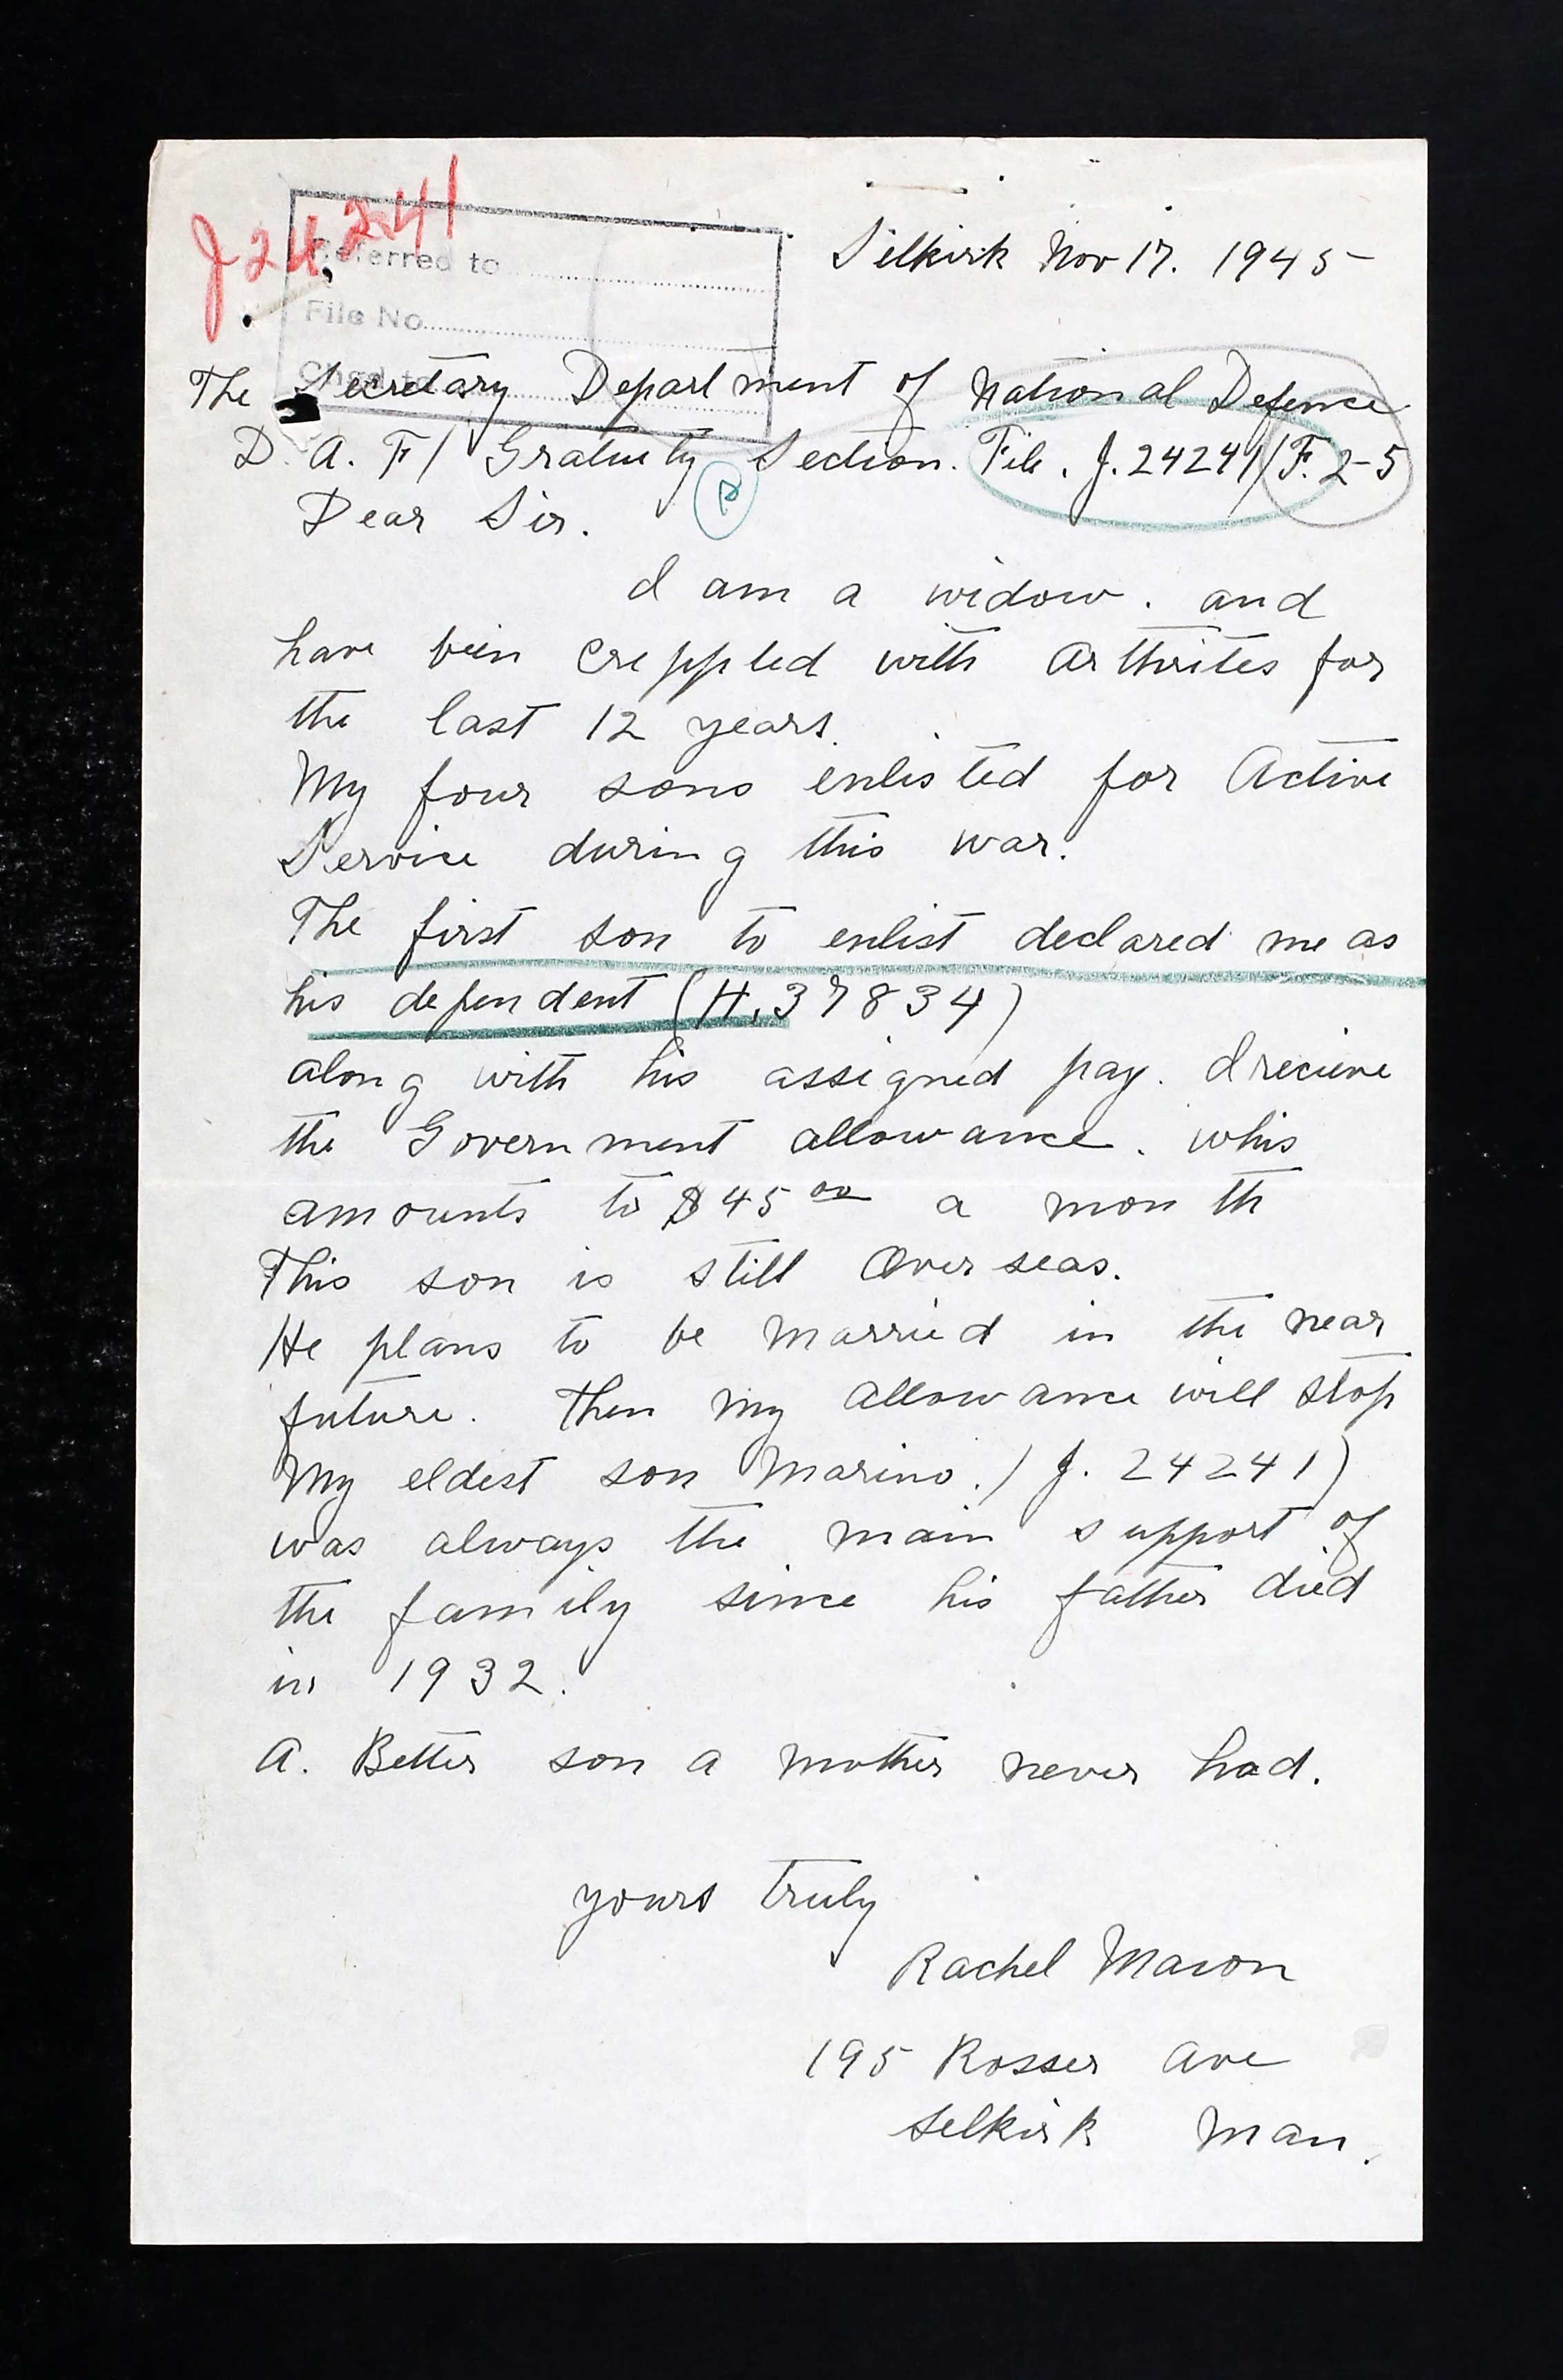 J 24241
Referred to
File No.
Chgd. to
Selkirk Nov 17. 1945
The Secretary Department of National Defence
D. A. F/ Gratuity Section. File. J. 24241/F. 2-5
Dear Sir.
I am a widow. and
have been creppled with Arthrites for
the last 12 years.
My four sons enlisted for Active
Service during this war.
The first son to enlist declared me as
his dependent (H. 37834)
along with his assigned pay. I recieve
the Government allowance. whis
amounts to $45 00 a month
This son is still Overseas.
He plans to be married in the near
future. Then my allowance will stop
My eldest son Marino. (J. 24241)
was always the main support of
the family since his father died
in 1932.
A. Better son a mother never had.
yours truly
Rachel Mason
195 Rosser Ave
Selkirk Man.